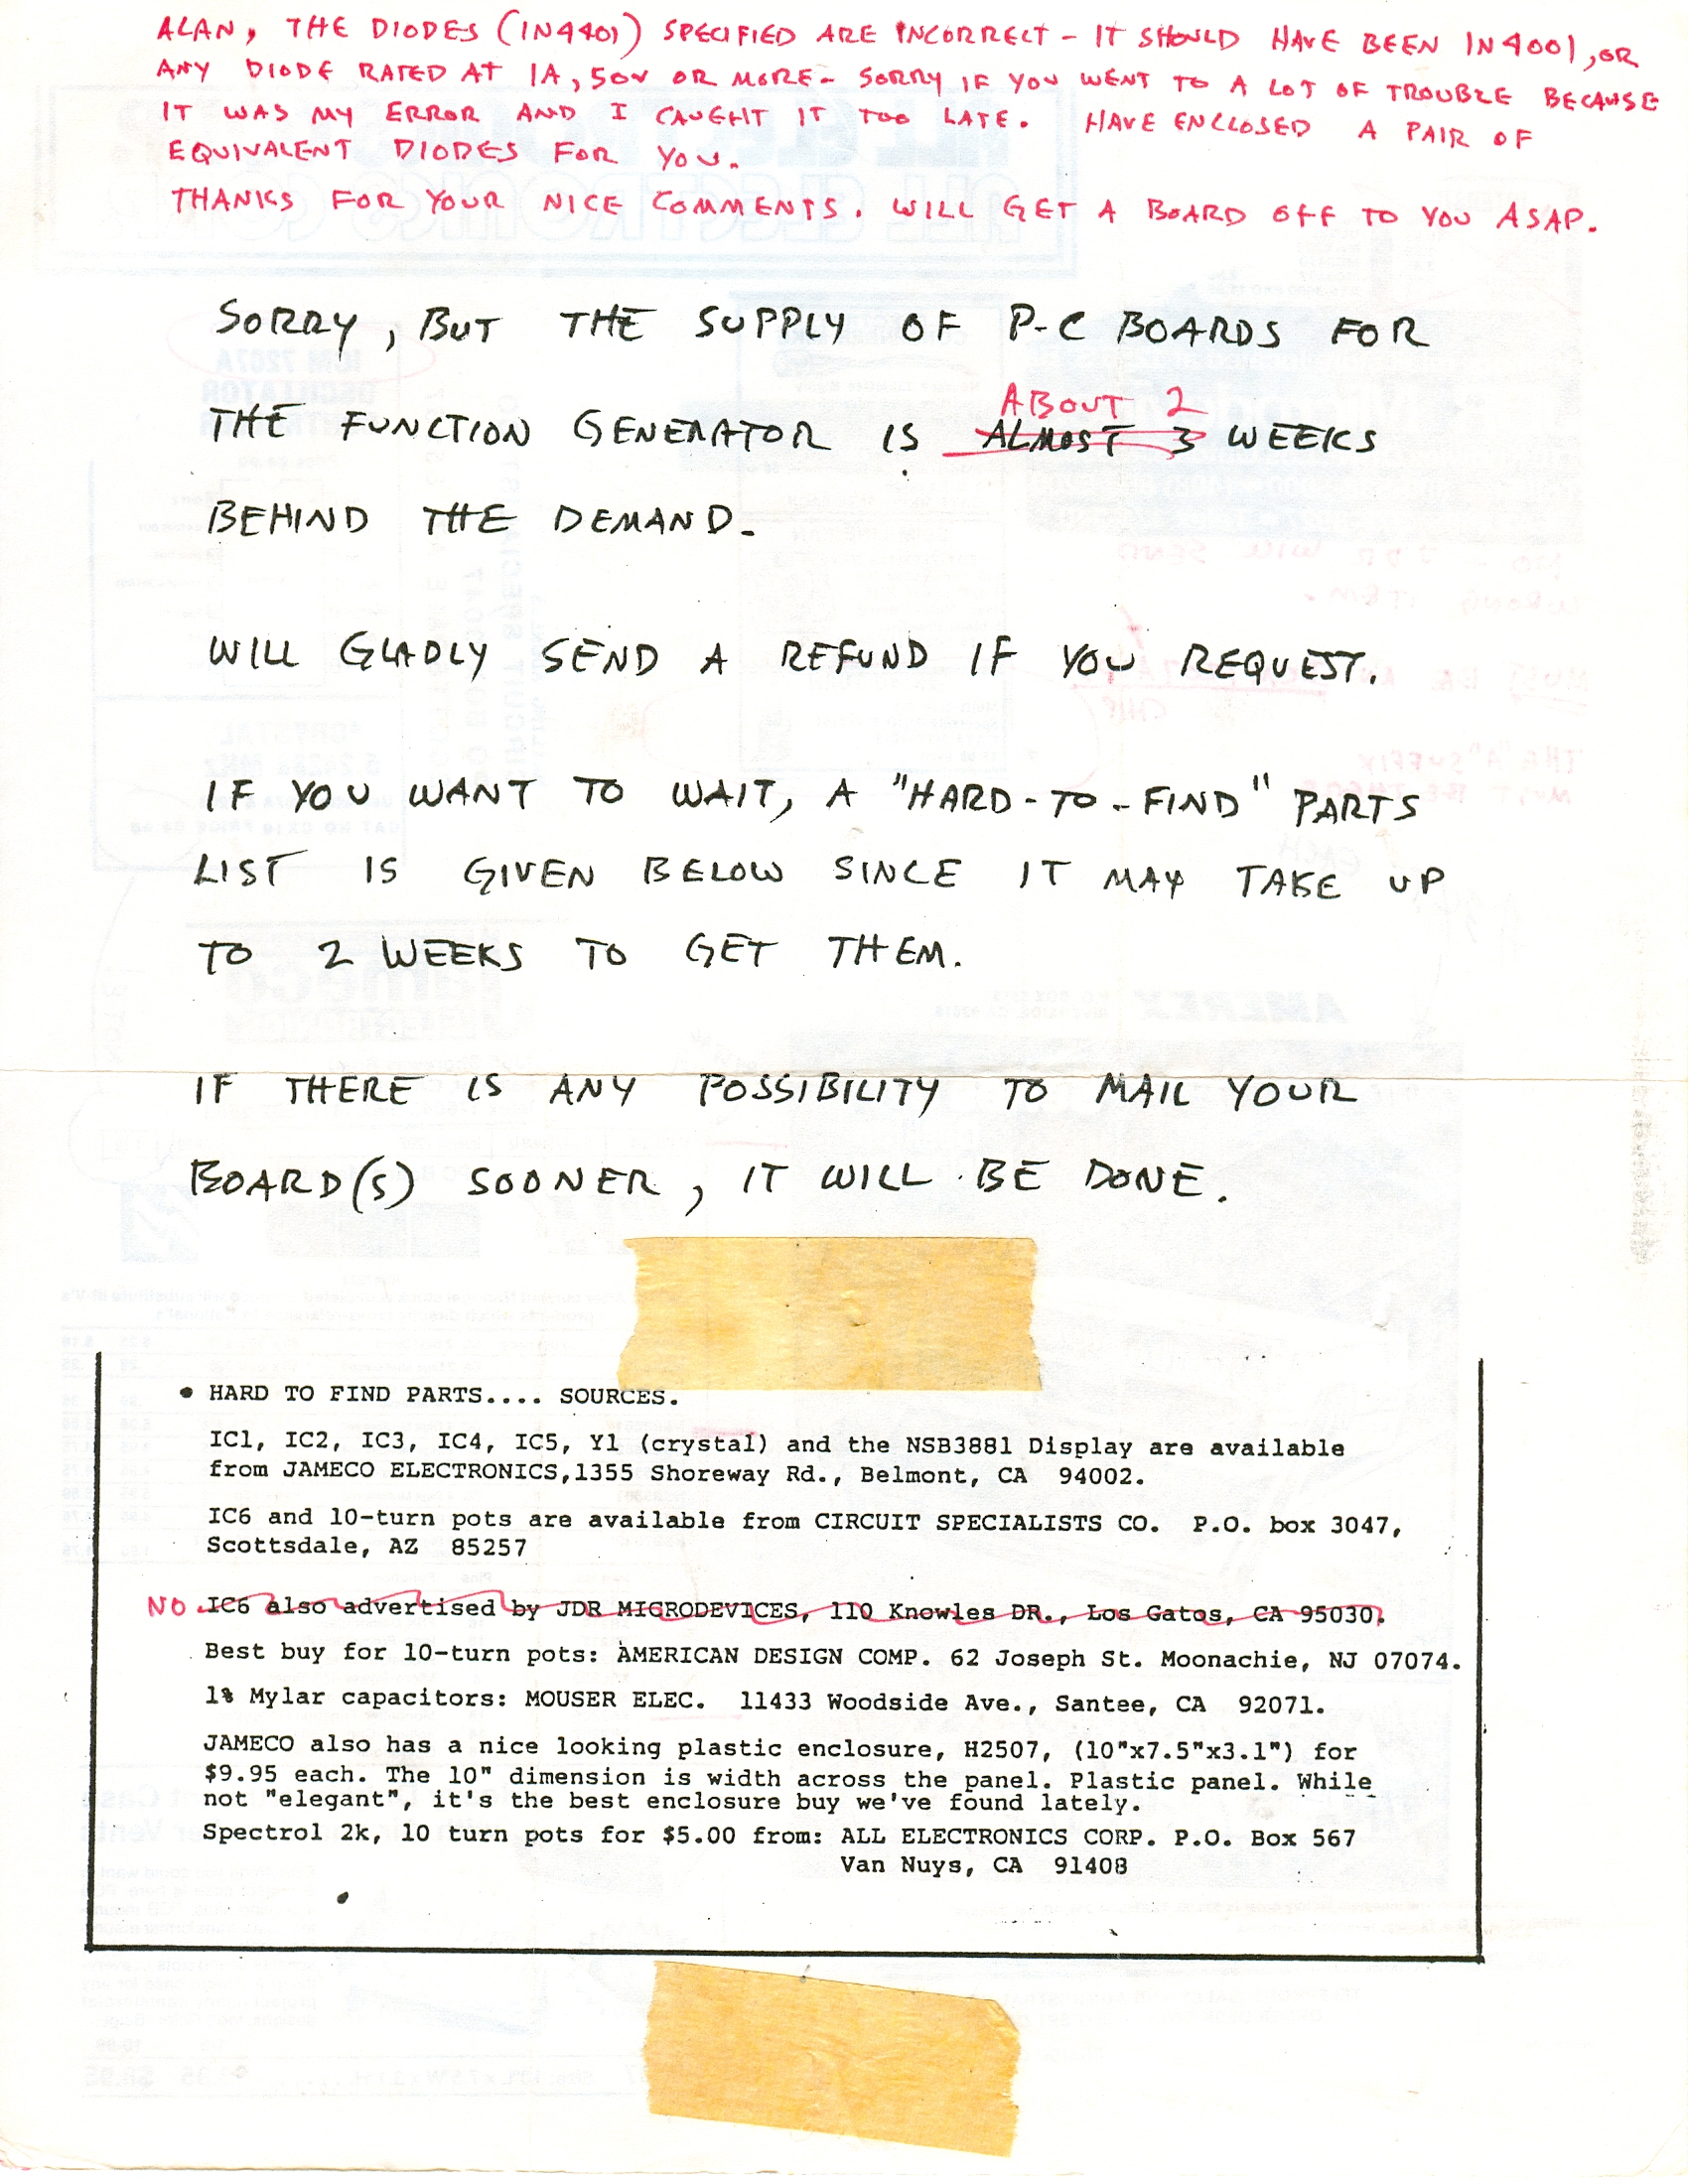 ALAN, THE DIODES (1N4401) SPECIFIED ARE INCORRECT - IT SHOULD HAVE BEEN 1N4001, OR
ANY DIODE RATED AT 1A, 50V OR MORE - SORRY IF YOU WENT TO A LOT OF TROUBLE BECAUSE
IT WAS MY ERROR AND I CAUGHT IT TOO LATE. HAVE ENCLOSED A PAIR OF
EQUIVALENT DIODES FOR YOU.
THANKS FOR YOUR NICE COMMENTS. WILL GET A BOARD OFF TO YOU ASAP.
SORRY, BUT THE SUPPLY OF P-C BOARDS FOR
ABOUT 2
THE FUNCTION GENERATOR IS ALMOST 3 WEEKS
BEHIND THE DEMAND.
WILL GLADLY SEND A REFUND IF YOU REQUEST.
IF YOU WANT TO WAIT, A "HARD-TO-FIND" PARTS
LIST IS GIVEN BELOW SINCE IT MAY TAKE UP
TO 2 WEEKS TO GET THEM.
IF THERE IS ANY POSSIBILITY TO MAIL YOUR
BOARD(S) SOONER, IT WILL BE DONE.
• HARD TO FIND PARTS.... SOURCES.
IC1, IC2, IC3, IC4, IC5, Y1 (crystal) and the NSB3881 Display are available
from JAMECO ELECTRONICS,1355 Shoreway Rd., Belmont, CA 94002.
IC6 and 10-turn pots are available from CIRCUIT SPECIALISTS CO. P.O. box 3047,
Scottsdale, AZ 85257
NO IC6 also advertised by JDR MICRODEVICES, 110 Knowles DR., Los Gatos, CA 95030.
Best buy for 10-turn pots: AMERICAN DESIGN COMP. 62 Joseph St. Moonachie, NJ 07074.
1% Mylar capacitors: MOUSER ELEC. 11433 Woodside Ave., Santee, CA 92071.
JAMECO also has a nice looking plastic enclosure, H2507, (10"x7.5"x3.1") for
$9.95 each. The 10" dimension is width across the panel. Plastic panel. While
not "elegant", it's the best enclosure buy we've found lately.
Spectrol 2k, 10 turn pots for $5.00 from: ALL ELECTRONICS CORP. P.O. Box 567
Van Nuys, CA 91408